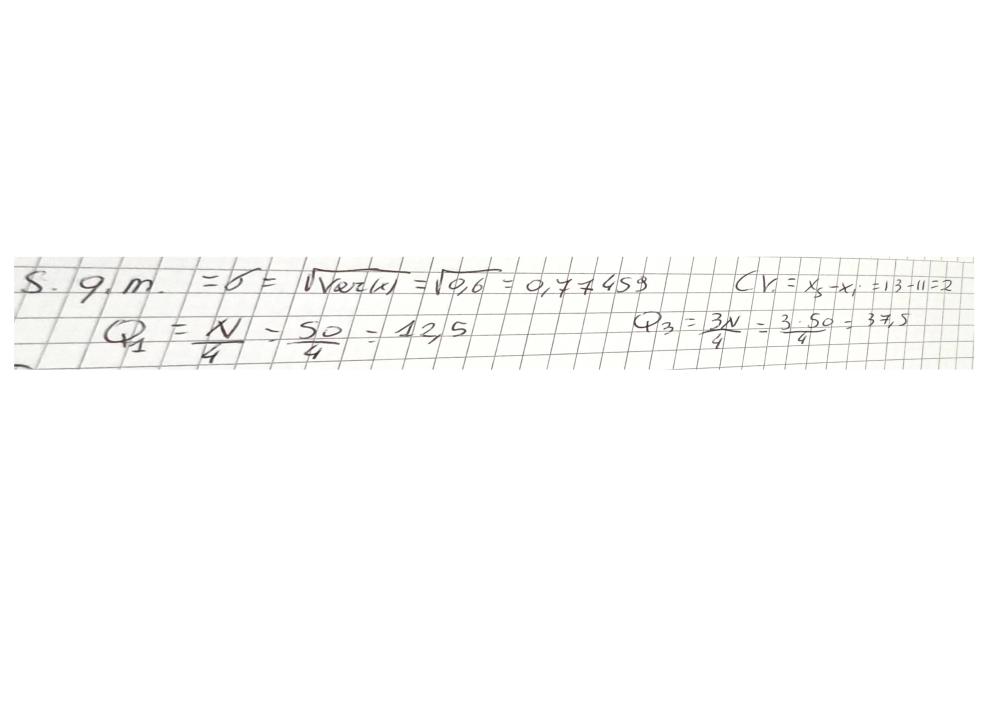 S. q. m. = σ = √Var(x) = √0,6 = 0,77459 C.V. = x₃ - x₁ = 13 - 11 = 2
Q₁ = N/4 = 50/4 = 12,5 Q₃ = 3N/4 = 3·50/4 = 37,5